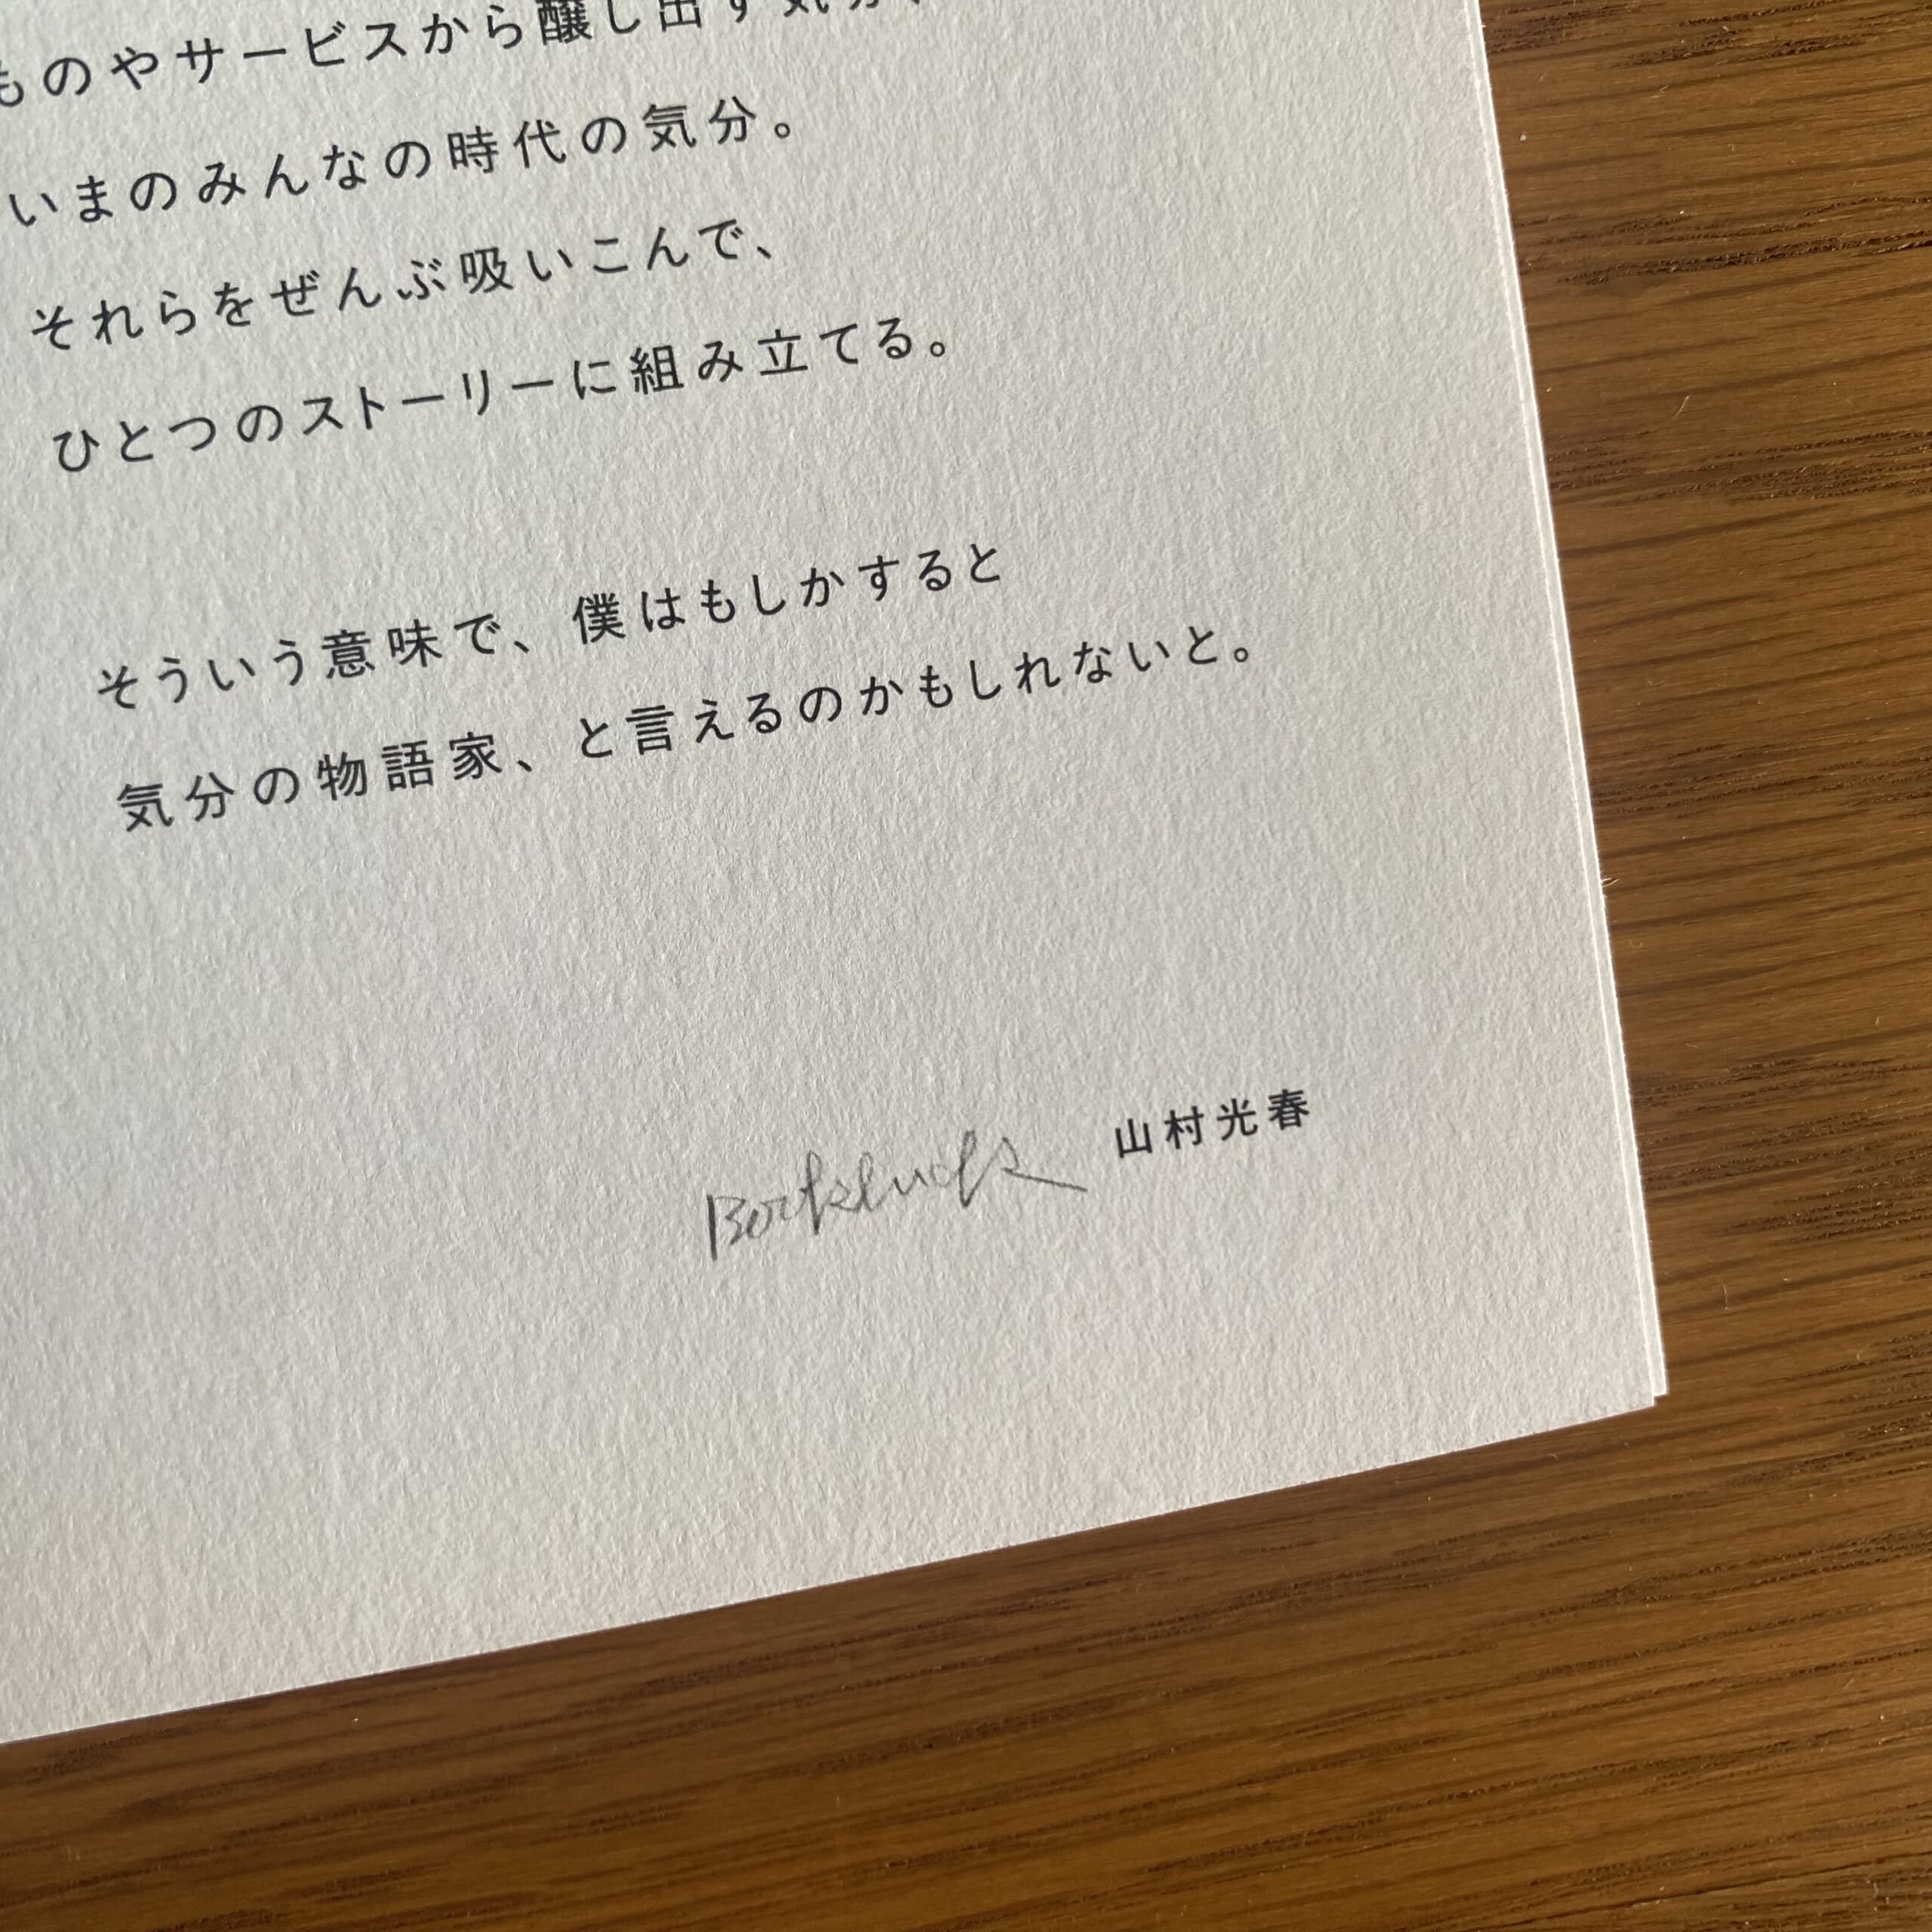 ものやサービスから醸し出す気分、
いまのみんなの時代の気分。
それらをぜんぶ吸いこんで、
ひとつのストーリーに組み立てる。
そういう意味で、僕はもしかすると
気分の物語家、と言えるのかもしれないと。
山村光春